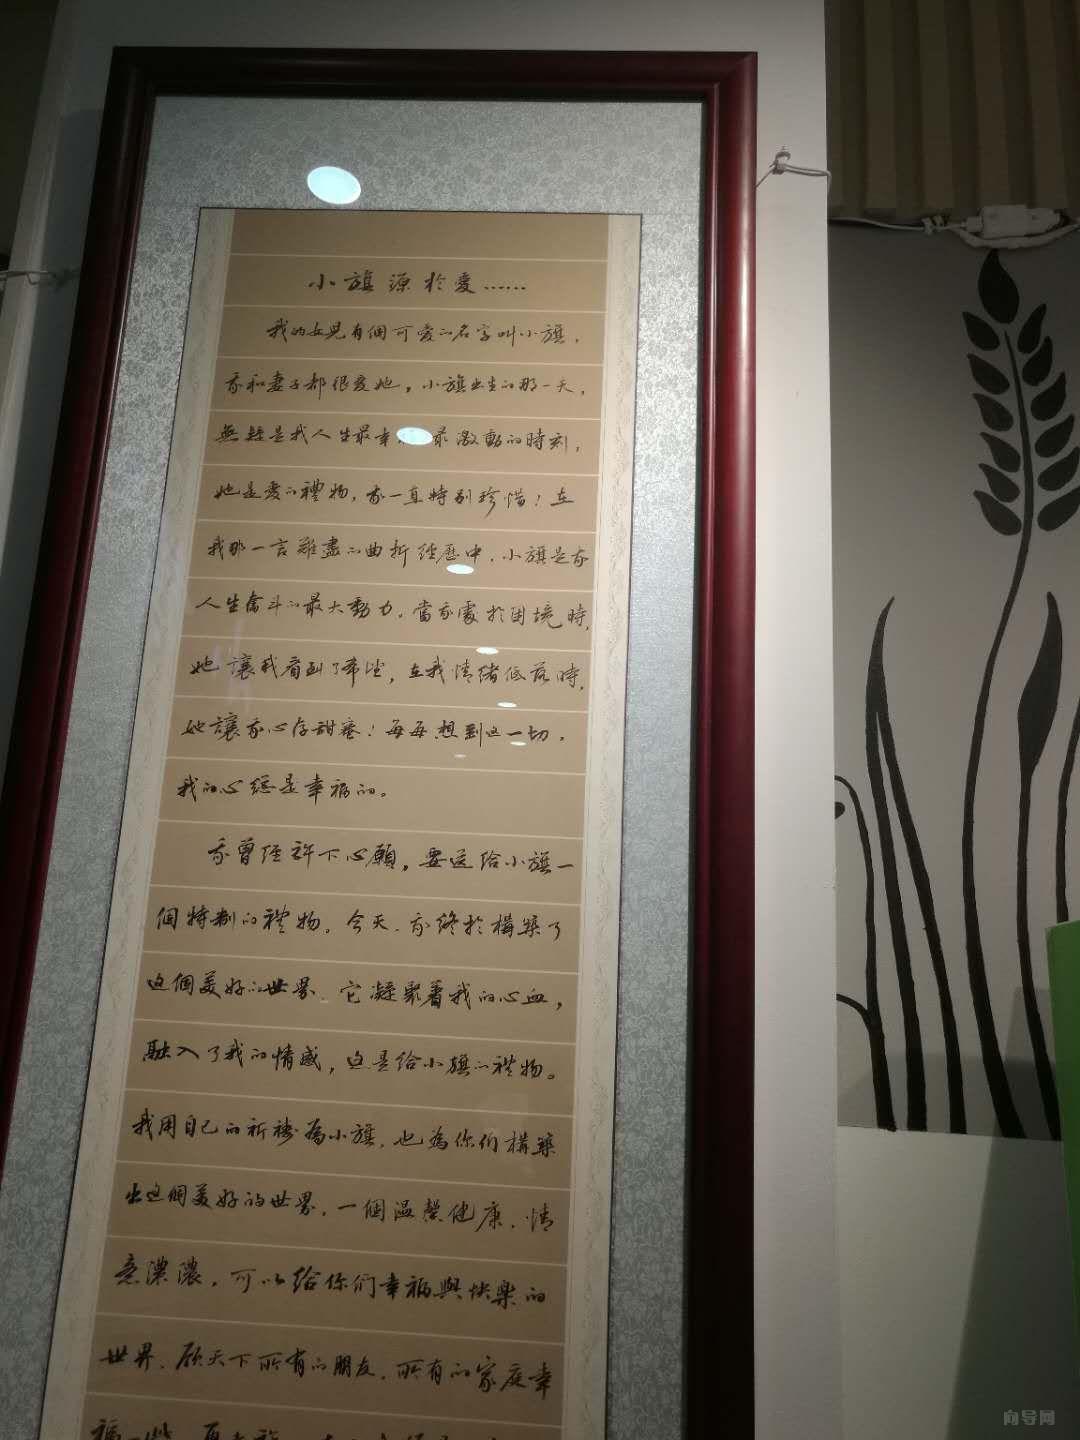 小旗源於愛……
我的女兒有個可愛的名字叫小旗，
我和妻子都很愛她。小旗出生的那一天，
無疑是我人生最幸 最激動的時刻，
她是愛的禮物，我一直特别珍惜！在
我那一言難盡的曲折經歷中，小旗是我
人生奮斗的最大動力。當我處於困境時，
她讓我看到了希望，在我情緒低落時，
她讓我心存甜蜜！每每想到这一切，
我的心總是幸福的。
我曾經許下心願，要送給小旗一
個特制的禮物。今天，我終於構築了
这個美好的世界，它凝聚着我的心血，
融入了我的情感，这是給小旗的禮物。
我用自己的祈禱為小旗，也為你们構築
出这個美好的世界，一個温馨健康，情
意濃濃，可以給你们幸福與快樂的
世界，願天下所有的朋友，所有的家庭幸
福一些，再
向导网